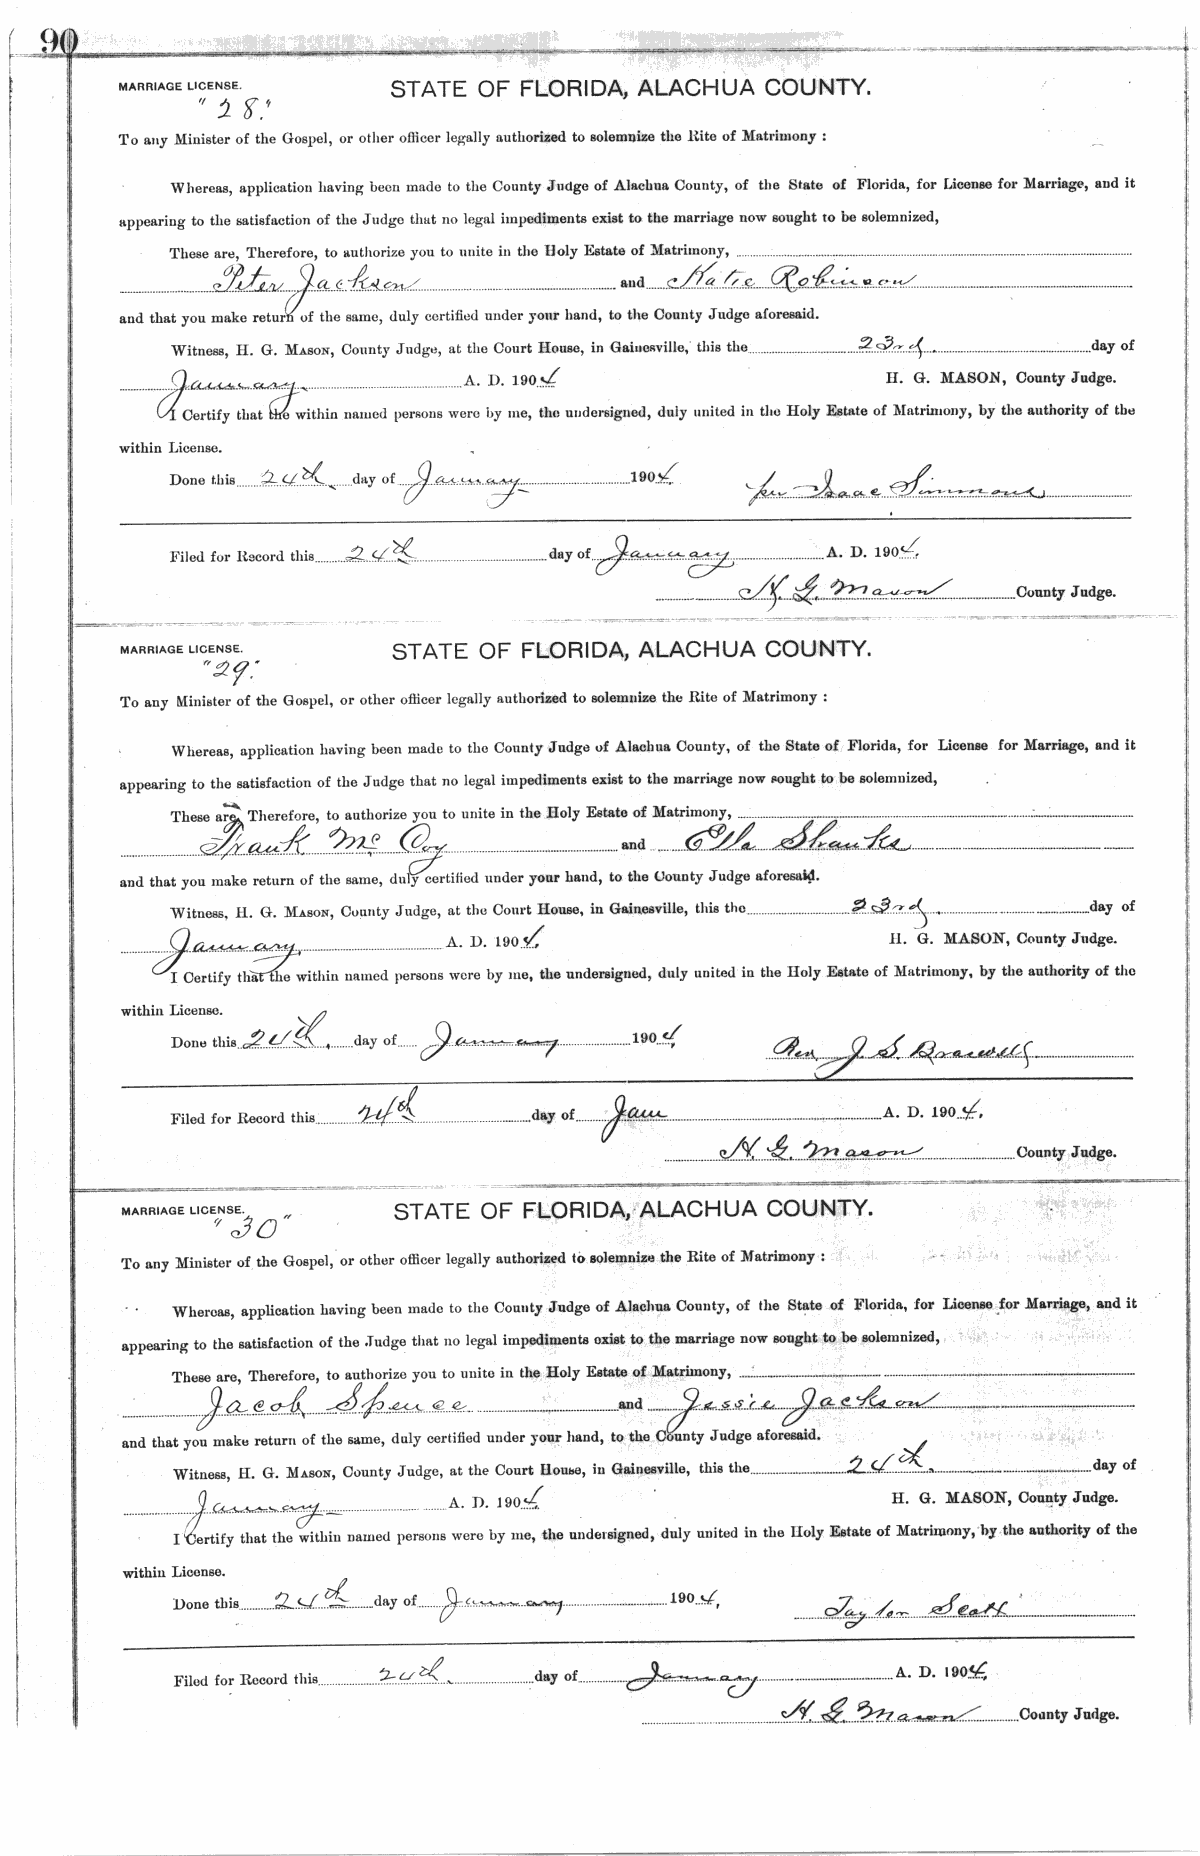 90
MARRIAGE LICENSE. STATE OF FLORIDA, ALACHUA COUNTY.
"28."
To any Minister of the Gospel, or other officer legally authorized to solemnize the Rite of Matrimony :
Whereas, application having been made to the County Judge of Alachua County, of the State of Florida, for License for Marriage, and it
appearing to the satisfaction of the Judge that no legal impediments exist to the marriage now sought to be solemnized,
These are, Therefore, to authorize you to unite in the Holy Estate of Matrimony,
Peter Jackson and Katie Robinson
and that you make return of the same, duly certified under your hand, to the County Judge aforesaid.
Witness, H. G. MASON, County Judge, at the Court House, in Gainesville, this the 23rd. day of
January. A. D. 1904 H. G. MASON, County Judge.
I Certify that the within named persons were by me, the undersigned, duly united in the Holy Estate of Matrimony, by the authority of the
within License.
Done this 24th. day of January 1904. per Isaac Simmons
Filed for Record this 24th day of January A. D. 1904.
H. G. Mason County Judge.
MARRIAGE LICENSE. STATE OF FLORIDA, ALACHUA COUNTY.
"29."
To any Minister of the Gospel, or other officer legally authorized to solemnize the Rite of Matrimony :
Whereas, application having been made to the County Judge of Alachua County, of the State of Florida, for License for Marriage, and it
appearing to the satisfaction of the Judge that no legal impediments exist to the marriage now sought to be solemnized,
These are, Therefore, to authorize you to unite in the Holy Estate of Matrimony,
Frank McCoy and Ella Shanks
and that you make return of the same, duly certified under your hand, to the County Judge aforesaid.
Witness, H. G. MASON, County Judge, at the Court House, in Gainesville, this the 23rd. day of
January. A. D. 1904. H. G. MASON, County Judge.
I Certify that the within named persons were by me, the undersigned, duly united in the Holy Estate of Matrimony, by the authority of the
within License.
Done this 24th. day of January 1904. Rev J. S. Braswell
Filed for Record this 24th day of Jan A. D. 1904.
H. G. Mason County Judge.
MARRIAGE LICENSE. STATE OF FLORIDA, ALACHUA COUNTY.
"30"
To any Minister of the Gospel, or other officer legally authorized to solemnize the Rite of Matrimony :
Whereas, application having been made to the County Judge of Alachua County, of the State of Florida, for License for Marriage, and it
appearing to the satisfaction of the Judge that no legal impediments exist to the marriage now sought to be solemnized,
These are, Therefore, to authorize you to unite in the Holy Estate of Matrimony,
Jacob Spence and Jessie Jackson
and that you make return of the same, duly certified under your hand, to the County Judge aforesaid.
Witness, H. G. MASON, County Judge, at the Court House, in Gainesville, this the 24th. day of
January A. D. 1904. H. G. MASON, County Judge.
I Certify that the within named persons were by me, the undersigned, duly united in the Holy Estate of Matrimony, by the authority of the
within License.
Done this 24th day of January 1904. Taylor Scott
Filed for Record this 24th. day of January A. D. 1904.
H. G. Mason County Judge.